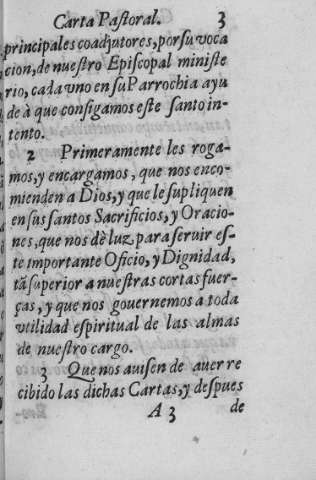 Carta Pastoral. 3
principales coadjutores, por su voca
cion, de nuestro Episcopal ministe
rio, cada vno en su Parrochia ayu
de à que consigamos este santo in-
tento.
2 Primeramente les roga-
mos, y encargamos, que nos enco-
mienden a Dios, y que le supliquen
en sus santos Sacrificios, y Oracio-
nes, que nos dè luz para seruir es-
te importante Oficio, y Dignidad,
tã superior a nuestras cortas fuer-
ças, y que nos gouernemos a toda
vtilidad espiritual de las almas
de nuestro cargo.
3 Que nos auisen de auer re
cibido las dichas Cartas, y despues
A 3 de